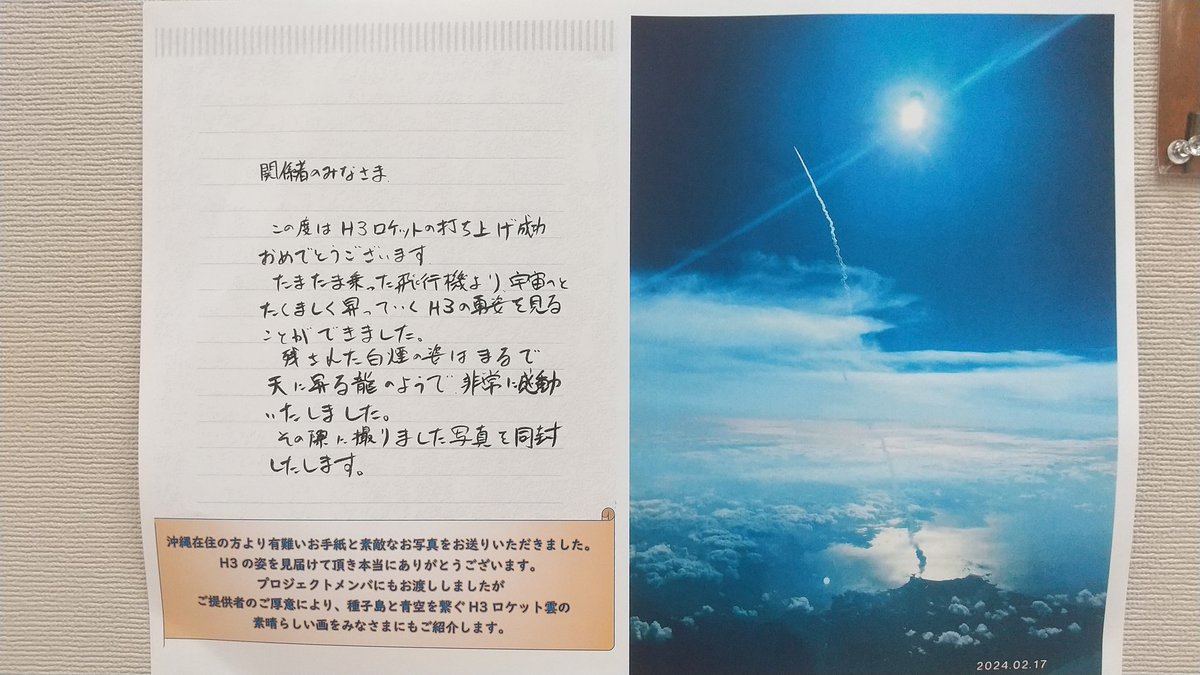 関係者のみなさま
この度はH3ロケットの打ち上げ成功
おめでとうございます
たまたま乗った飛行機より、宇宙へと
たくましく昇っていくH3の勇姿を見る
ことができました。
残された白煙の姿はまるで
天に昇る龍のようで非常に感動
いたしました。
その際に撮りました写真を同封
したします。
沖縄在住の方より有難いお手紙と素敵なお写真をお送りいただきました。
H3の姿を見届けて頂き本当にありがとうございます。
プロジェクトメンバにもお渡ししましたが
ご提供者のご厚意により、種子島と青空を繋ぐH3ロケット雲の
素晴らしい画をみなさまにもご紹介します。
2024.02.17